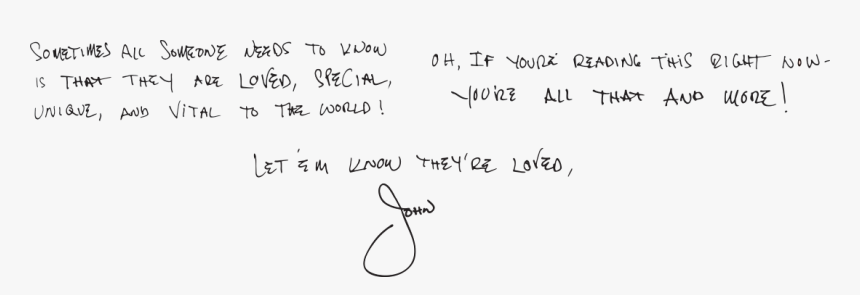 SOMETIMES ALL SOMEONE NEEDS TO KNOW
IS THAT THEY ARE LOVED, SPECIAL,
UNIQUE, AND VITAL TO THE WORLD!
OH, IF YOU'RE READING THIS RIGHT NOW-
YOU'RE ALL THAT AND MORE!
LET 'EM KNOW THEY'RE LOVED,
JOHN